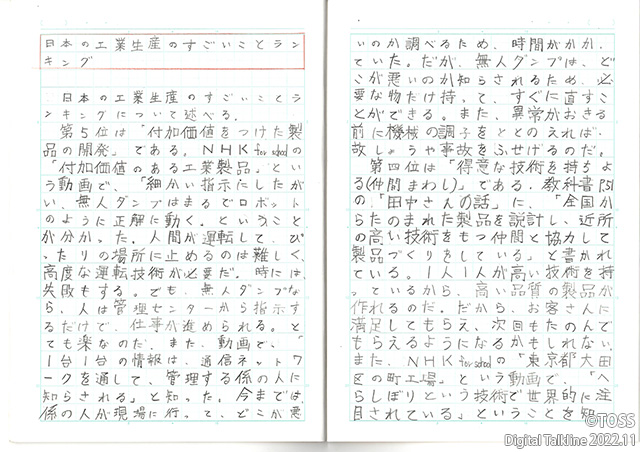 日本の工業生産のすごいことラン
キング
日本の工業生産のすごいことラ
ンキングについて述べる。
第5位は「付加価値をつけた製
品の開発」である。NHK for schoolの
「付加価値のある工業製品」とい
う動画で、「細かい指示にしたが
い、無人ダンプはまるでロボット
のように正解に動く。ということ
が分かった。人間が運転して、ぴ
ったりの場所に止めるのは難しく、
高度な運転技術が必要だ。時には、
失敗もする。でも、無人ダンプな
ら、人は管理センターから指示す
るだけで、仕事が進められる。と
ても楽なのだ。また、動画で、「
1台1台の情報は、通信ネットワ
ークを通して、管理する係の人に
知らされる」と知った。今までは、
係の人が現場に行って、どこが悪
いのか調べるため、時間がかか
ていた。だが、無人ダンプは、ど
こが悪いのか知らされるため、必
要な物だけ持って、すぐに直すこ
とができる。また、異常がおきる
前に機械の調子をととのえれば、
故しょうや事故をふせげるのだ。
第四位は「得意な技術を持ちよ
る(仲間まわし)」である。教科書P51
の、「田中さんの話」に、「全国か
らたのまれた製品を設計し、近所
の高い技術をもつ仲間と協力して
製品づくりをしている」と書かれ
ている。1人1人が高い技術を持
っているから、高い品質の製品が
作れるのだ。だから、お客さんに
満足してもらえ、次回もたのんで
もらえるようになるかもしれない。
また、NHK for schoolの「東京都大田
区の町工場」という動画で、「へ
らしぼりという技術で世界的に注
目されている」ということを知
©TOSS
Digital Talkline 2022.11